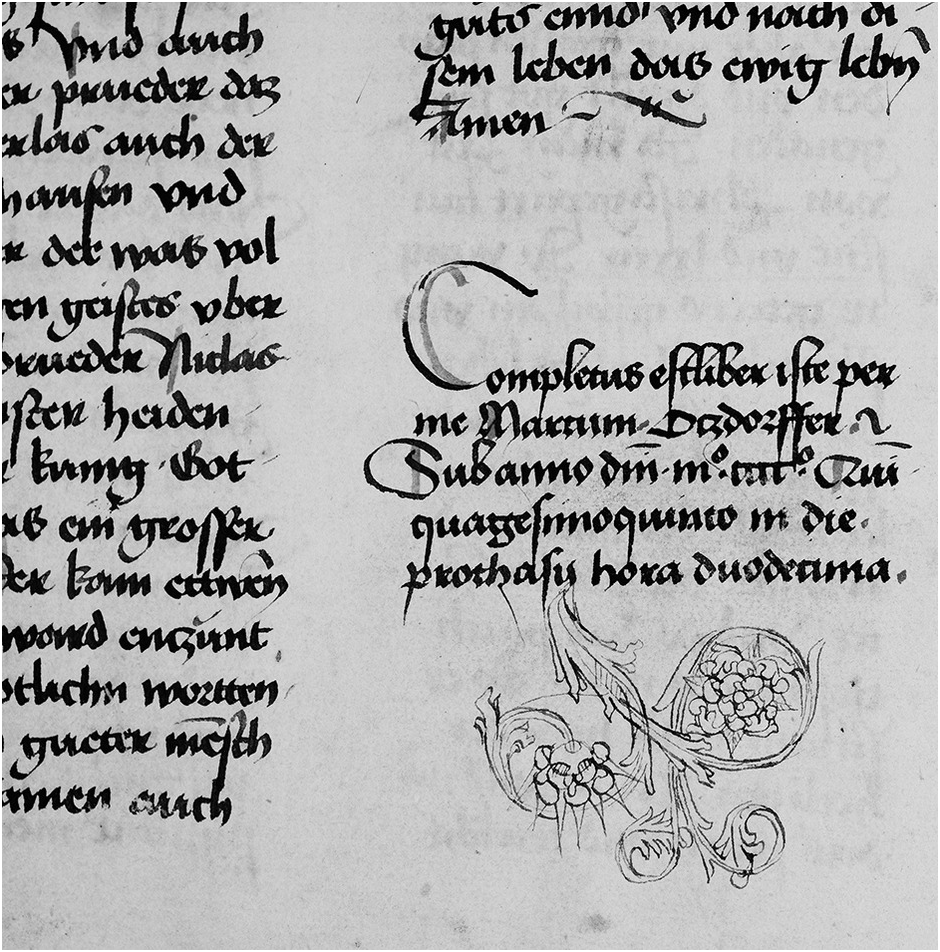 vnd auch
prueder daz
auch der
vnd
der was vol
geistes vber
prueder Niclas
heiden
kunig · Got
ein grosser
kam ettwen̄
ward enczunt
wortten
gueter mēsch
amen auch
guts ennd vnd nach di
sem leben das ewig lebn̄
Amen
Completus est liber iste per
me Marcum Otzdorffer
Sub anno dm̄ · mº · cccc º
quagesimoquinto in die ·
prothasij hora duodecima .